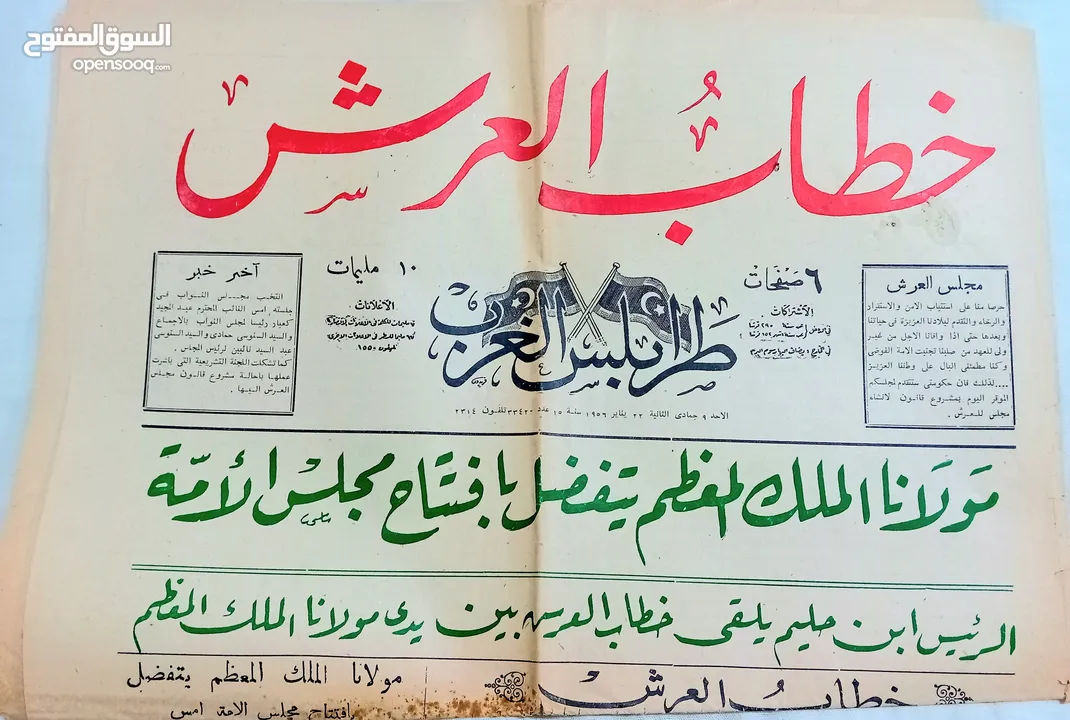 السوق المفتوح
opensooq.com
خطاب العرش
مجلس العرش
حرصا منا على استتباب الامن والاستقرار
والرخاء والتقدم لبلادنا العزيزة في حياتنا
وبعدها حتى اذا وافانا الاجل من غير
ولى للعهد من صلبنا تجنبت الامة الفوضى
وكنا مطمئنى البال على وطننا العزيز
....لذلك فان حكومتى ستتقدم لمجلسكم
الموقر اليوم بمشروع قانون لانشاء
مجلس للعرش .
٦ صفحات
الاشتراكات :
طرابلس الغرب
١٠ مليمات
الاعلانات :
آخر خبر
انتخب مجلس النواب فى
جلسته امس النائب المحترم عبد المجيد
كعبار رئيسا لمجلس النواب بالاجماع
والسيد السنوسى حمادى والسيد السنوسى
عبد السيد نائبين لرئيس المجلس .
كما تشكلت اللجنة التشريعية التى باشرت
عملها باحالة مشروع قانون مجلس
العرش اليها .
الاحد ٩ جمادى الثانية ٢٢ يناير ١٩٥٦ سنة ١٥ عدد ٣٣٤٢ تلفون ٢٣١٤
مولانا الملك المعظم يتفضل بافتتاح مجلس الأمة
الرئيس ابن حليم يلقى خطاب العرش بين يدى مولانا الملك المعظم
خطاب العرش
مولانا الملك المعظم يتفضل
بافتتاح مجلس الامة امس